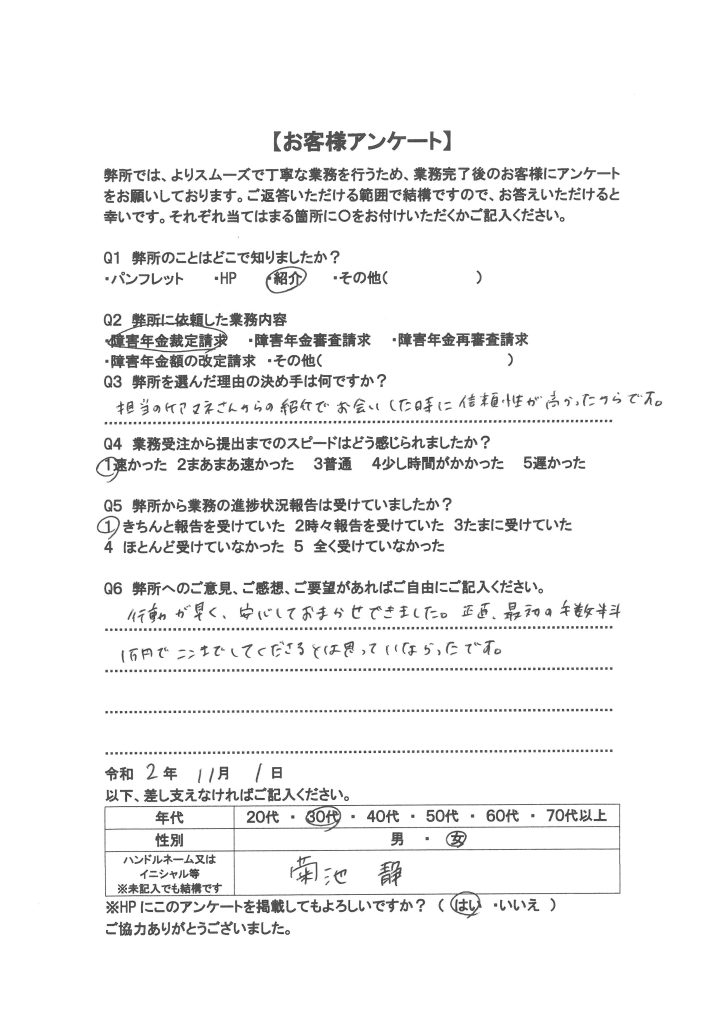 【お客様アンケート】
弊所では、よりスムーズで丁寧な業務を行うため、業務完了後のお客様にアンケート
をお願いしております。ご返答いただける範囲で結構ですので、お答えいただけると
幸いです。それぞれ当てはまる箇所に〇をお付けいただくかご記入ください。
Q1 弊所のことはどこで知りましたか？
・パンフレット ・HP ・紹介 ・その他( )
Q2 弊所に依頼した業務内容
・障害年金裁定請求 ・障害年金審査請求 ・障害年金再審査請求
・障害年金額の改定請求 ・その他( )
Q3 弊所を選んだ理由の決め手は何ですか？
担当のケアマネさんからの紹介でお会いした時に信頼性が高かったからです。
Q4 業務受注から提出までのスピードはどう感じられましたか？
1速かった 2まあまあ速かった 3普通 4少し時間がかかった 5遅かった
Q5 弊所から業務の進捗状況報告は受けていましたか？
1 きちんと報告を受けていた 2時々報告を受けていた 3たまに受けていた
4 ほとんど受けていなかった 5 全く受けていなかった
Q6 弊所へのご意見、ご感想、ご要望があればご自由にご記入ください。
行動が早く、安心しておまかせできました。正直、最初の手数料
1万円でここまでしてくださるとは思っていなかったです。
令和 2 年 11月 1 日
以下、差し支えなければご記入ください。
年代 20代 ・ 30代 ・ 40代 ・ 50代 ・ 60代 ・ 70代以上
性別 男 ・ 女
ハンドルネーム又は
イニシャル等 菊池 静
※未記入でも結構です
※HPにこのアンケートを掲載してもよろしいですか？ ( はい ・いいえ )
ご協力ありがとうございました。